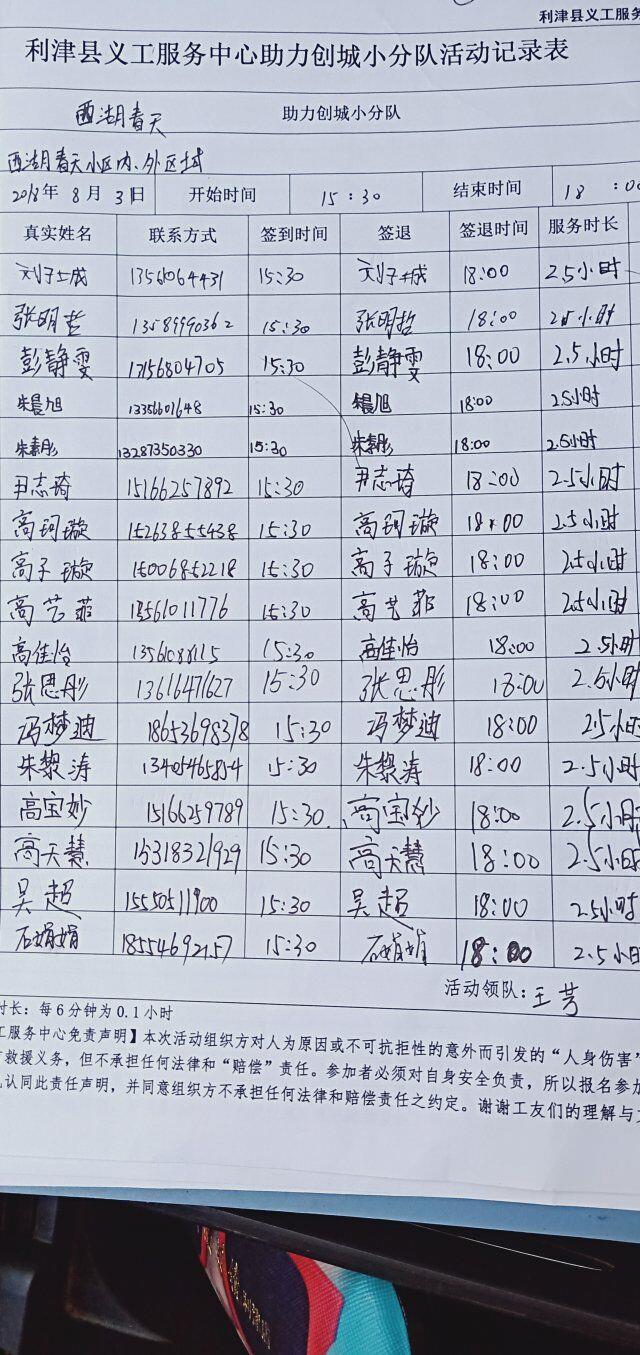 利津县义工服务
利津县义工服务中心助力创城小分队活动记录表
西湖春天 助力创城小分队
西湖春天小区内、外区域
2018年 8月 3日 开始时间 15:30 结束时间 18:00
真实姓名 联系方式 签到时间 签退 签退时间 服务时长
13561064431 15:30 18:00 2.5小时
张明哲 13589990362 15:30 张明哲 18:00 2.5小时
彭静雯 15:30 彭静雯 18:00 2.5小时
朱晨旭 13356601648 15:30 朱晨旭 18:00 2.5小时
13287350330 15:30 18:00 2.5小时
尹志琦 15166257892 15:30 尹志琦 18:00 2.5小时
高珂璇 15263855438 15:30 高珂璇 18:00 2.5小时
高子璇 15006852218 15:30 高子璇 18:00 2.5小时
高艺菲 13561011776 15:30 高艺菲 18:00 2.5小时
高佳怡 15:30 高佳怡 18:00 2.5小时
张思彤 13616471627 15:30 张思彤 18:00 2.5小时
冯梦迪 18653698378 15:30 冯梦迪 18:00 2.5小时
朱黎涛 13405465854 15:30 朱黎涛 18:00 2.5小时
高宝妙 15166259789 15:30 高宝妙 18:00 2.5小时
高天慧 15318321929 15:30 高天慧 18:00 2.5小时
吴超 15550511900 15:30 吴超 18:00 2.5小时
石娟娟 18554692157 15:30 石娟娟 18:00 2.5小时
活动领队：王芳
时长：每6分钟为0.1小时
工服务中心免责声明】本次活动组织方对人为原因或不可抗拒性的意外而引发的“人身伤害”
救援义务，但不承担任何法律和“赔偿”责任。参加者必须对自身安全负责，所以报名参加
认同此责任声明，并同意组织方不承担任何法律和赔偿责任之约定。谢谢工友们的理解与